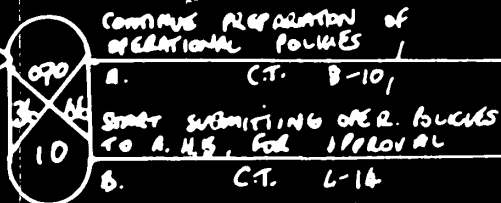 CONTINUE PREPARATION OF
OPERATIONAL POLICIES
070
A. C.T. 8-10
36 66
START SUBMITTING OPER. POLICIES
TO A.H.S. FOR APPROVAL
10
B. C.T. 6-14